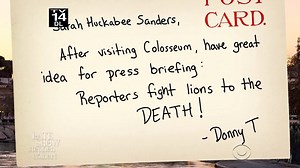 POST
CARD.
14
DL
Sarah Huckabee Sanders,
After visiting Colosseum, have great
idea for press briefing:
Reporters fight lions to the
DEATH!
- Donny T